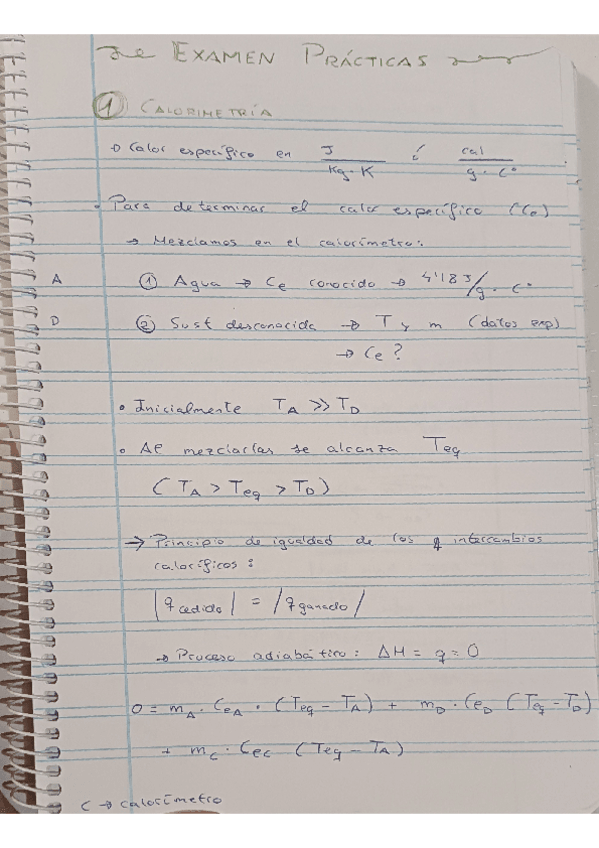 EXAMEN PRÁCTICAS
① CALORIMETRÍA
Calor específico en J / Kg · K ó cal / g · Cº
Para determinar el calor específico (Ce)
→ Mezclamos en el calorímetro:
A ① Agua → Ce conocido → 4'183 J/g · Cº
D ② Sust desconocida → T y m (datos exp)
→ Ce?
• Inicialmente TA >> TD
• Al mezclarlas se alcanza Teq
(TA > Teq > TD)
→ Principio de igualdad de los intercambios
caloríficos:
|q cedido| = |q ganado|
→ Proceso adiabático: ΔH = q = 0
0 = mA · CeA · (Teq - TA) + mD · CeD (Teq - TD)
+ mC · CeC (Teq - TA)
C → calorímetro